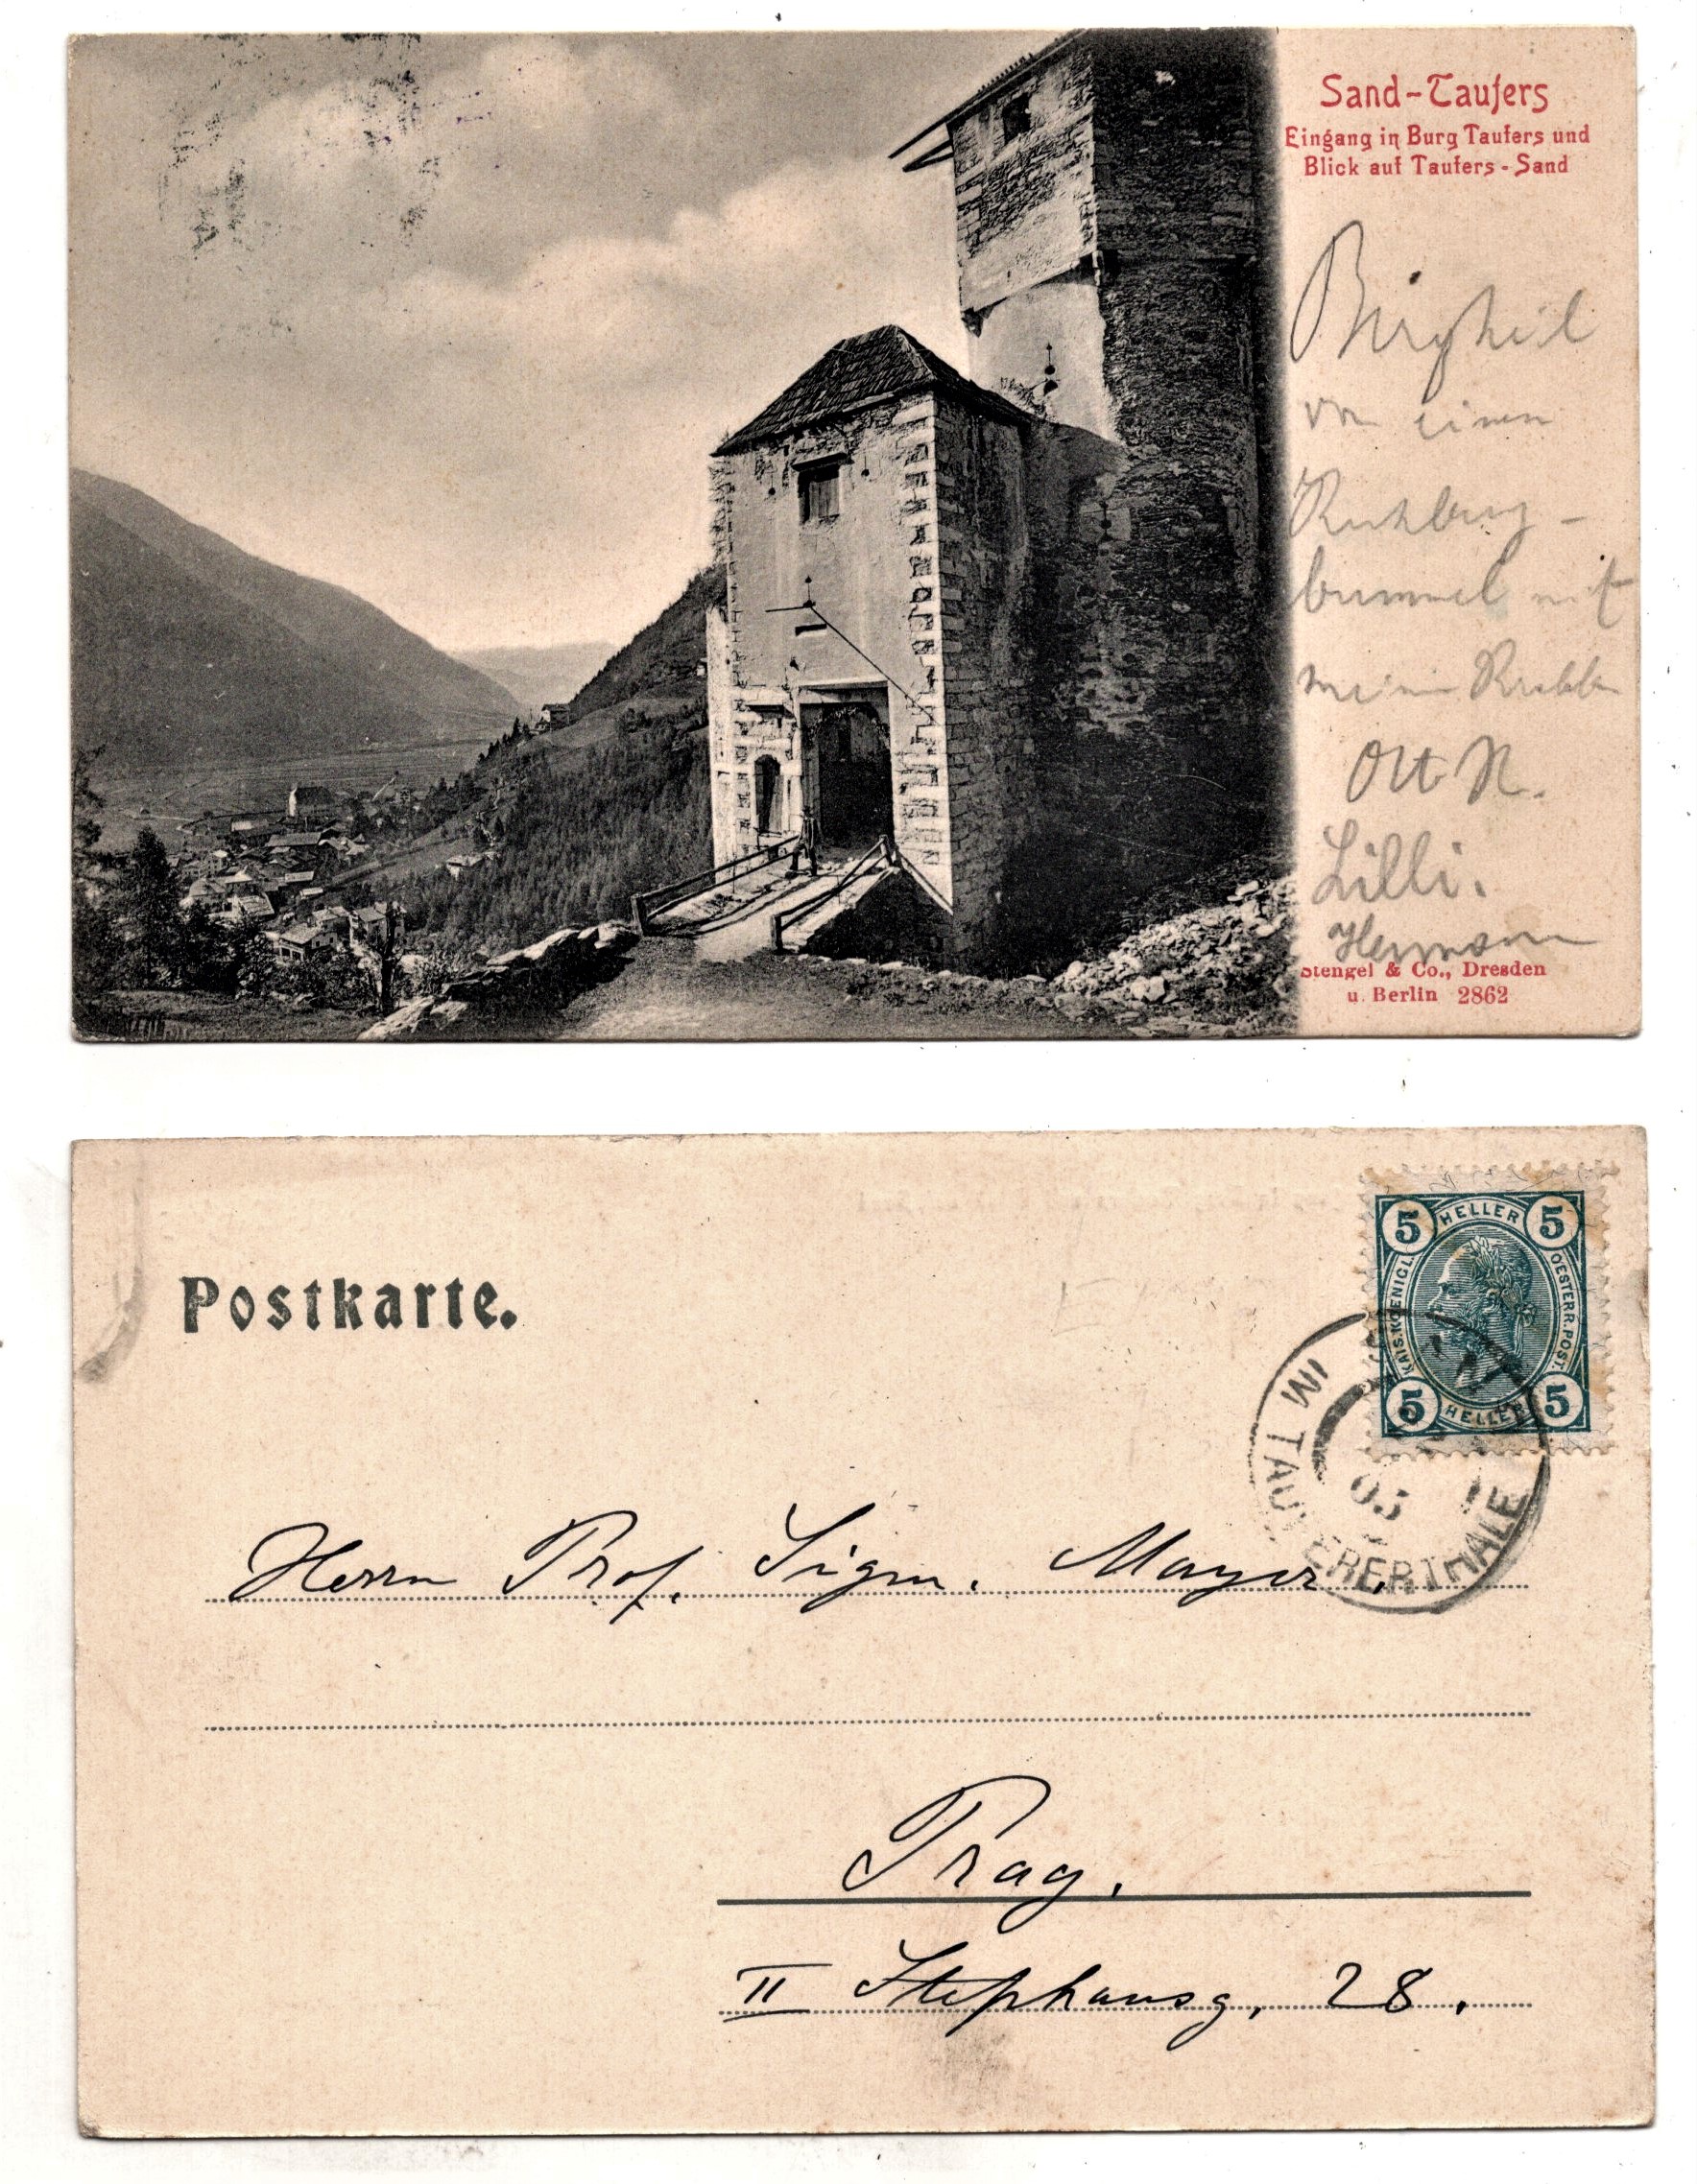 Sand-Taufers
Eingang in Burg Taufers und
Blick auf Taufers-Sand
von einem
bummel mit
Otto N.
Lilli.
Hermann
Stengel & Co., Dresden
u. Berlin 2862
Postkarte.
5 HELLER 5
KAIS. KOENIGL. OESTERR. POST.
5 HELLER 5
IM TAUFERERTHALE
05
Herrn Prof. Sigm. Mayer,
Prag.
II Stephansg. 28.